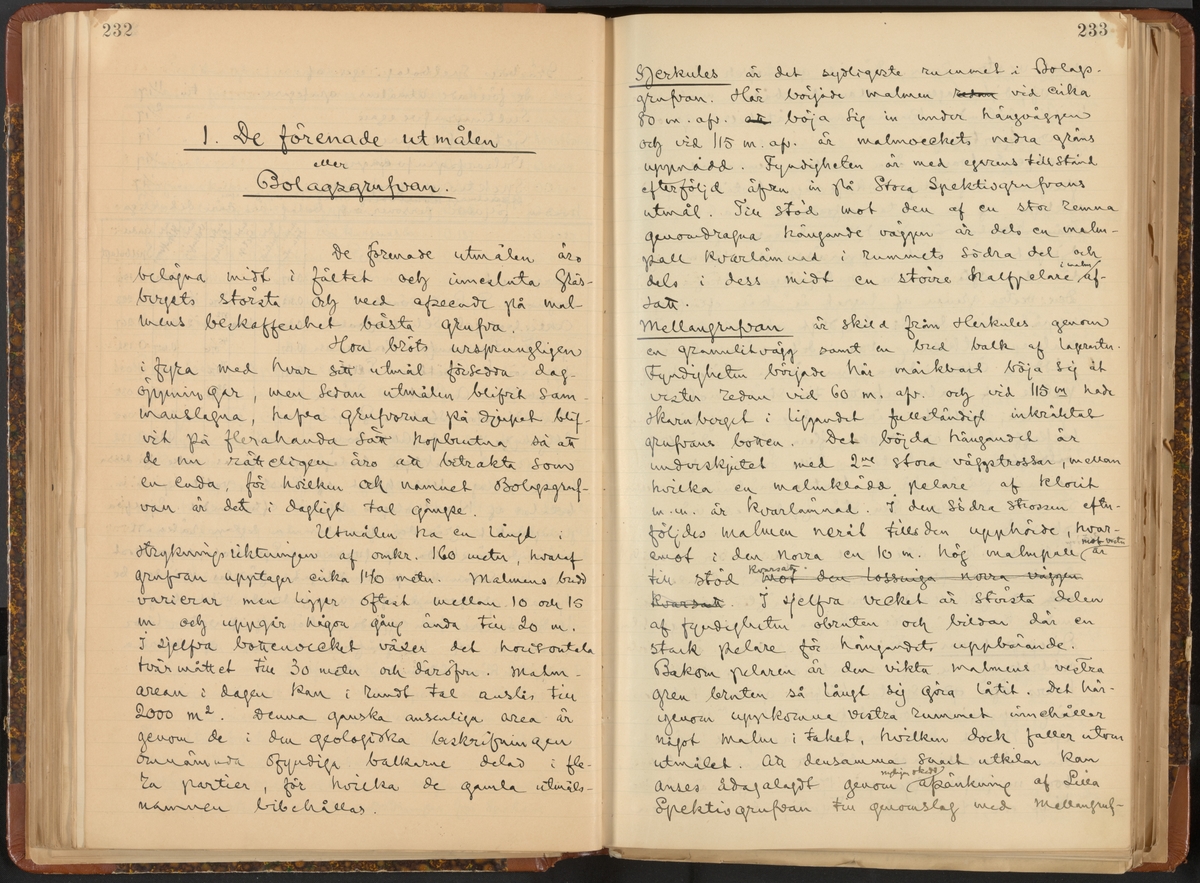 232
1. De förenade utmålen
eller
Bolagsgrufvan.
De förenade utmålen äro
belägna midt i fältet och innesluta Gräs-
bergets största och med afseende på mal-
mens beskaffenhet bästa grufva.
Hon bröts ursprungligen
i fyra med hvar sitt utmål försedda dag-
öppningar, men sedan utmålen blifvit sam-
manslagna, hafva grufvorna på djupet blif-
vit på flerahanda sätt hopbrutna så att
de nu rätteligen äro att betrakta som
en enda, för hvilken ock namnet Bolagsgruf-
van är det i dagligt tal gängse.
Utmålen ha en längd i
strykningsriktningen af omkr. 160 meter, hvaraf
grufvan upptager cirka 140 meter. Malmens bredd
varierar men ligger oftast mellan 10 och 15
m och uppgår någon gång ända till 20 m.
I sjelfva bottenvecket växer det horisontela
tvärmåttet till 30 meter och däröfver. Malm-
arean i dagen kan i rundt tal anslås till
2000 m². Denna ganska ansenliga area är
genom de i den geologiska beskrifningen
omnämnda ofyndiga balkarne delad i fle-
ra partier, för hvilka de gamla utmåls-
namnen bibehållas.
233
Herkules är det sydligaste rummet i Bolags-
grufvan. Här började malmen redan vid cirka
80 m. afv. att böja sig in under hängväggen
och vid 115 m. afv. är malmveckets nedra gräns
uppnådd. Fyndigheten är med egarens tillstånd
efterföljd äfven in på Stora Spektivgrufvans
utmål. Till stöd mot den af en stor remna
genomdragna hängande väggen är dels en malm-
pall kvarlämnad i rummets södra del och
dels i dess midt en större halfpelare i malm af-
satt.
Mellangrufvan är skild från Herkules genom
en granulitvägg samt en bred balk af lagerart.
Fyndigheten började här märkbart böja sig åt
vester redan vid 60 m. afv. och vid 115 m hade
skarnberget i liggandet fullständigt inkräktat
grufvans botten. Det böjda hängandet är
underskjutet med 2ne stora väggstrossar, mellan
hvilka en malmklädd pelare af klorit
m.m. är kvarlämnad. I den södra strossen efter-
följdes malmen neråt tills den upphörde, hvar-
emot i den norra en 10 m. hög malmpall mot vester är
till stöd kvarsatt. mot den lossniga norra väggen
kvarsatt. I sjelfva vecket är största delen
af fyndigheten obruten och bildar där en
stark pelare för hängandets uppbärande.
Bakom pelaren är den vikta malmens vestra
gren bruten så långt sig göra låtit. Det här-
igenom uppkomna vestra rummet innehåller
något malm i taket, hvilken dock faller utom
utmålet. Att densamma snart utkilar kan
anses ådagalagdt genom afsänkning af Lilla
Spektivgrufvan till genomslag med Mellangruf-